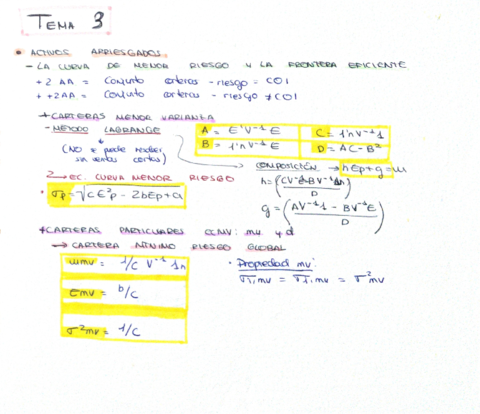 TEMA 3
• ACTIVOS ARRIESGADOS.
- LA CURVA DE MENOR RIESGO Y LA FRONTERA EFICIENTE
+2 AA = Conjunto carteras - riesgo = COI
++2AA = Conjunto carteras - riesgo ≠ COI
* CARTERAS MENOR VARIANZA
- METODO LAGRANGE
(NO se puede resolver sin ventas cortas)
A = E'V⁻¹E
C = 1'nV⁻¹1
B = 1'nV⁻¹E
D = AC-B²
COMPOSICIÓN → hEp+g = w
h = (CV⁻¹E-BV⁻¹1n / D)
g = (AV⁻¹1 - BV⁻¹E / D)
→ EC. CURVA MENOR RIESGO
• σp = √cE²p - 2bEp+a
* CARTERAS PARTICULARES CCMV: mv y d
→ CARTERA MÍNIMO RIESGO GLOBAL
wmv = 1/C V⁻¹ 1n
Emv = b/c
σ²mv = 1/C
• Propiedad mv:
σi mv = σj mv = σ²mv